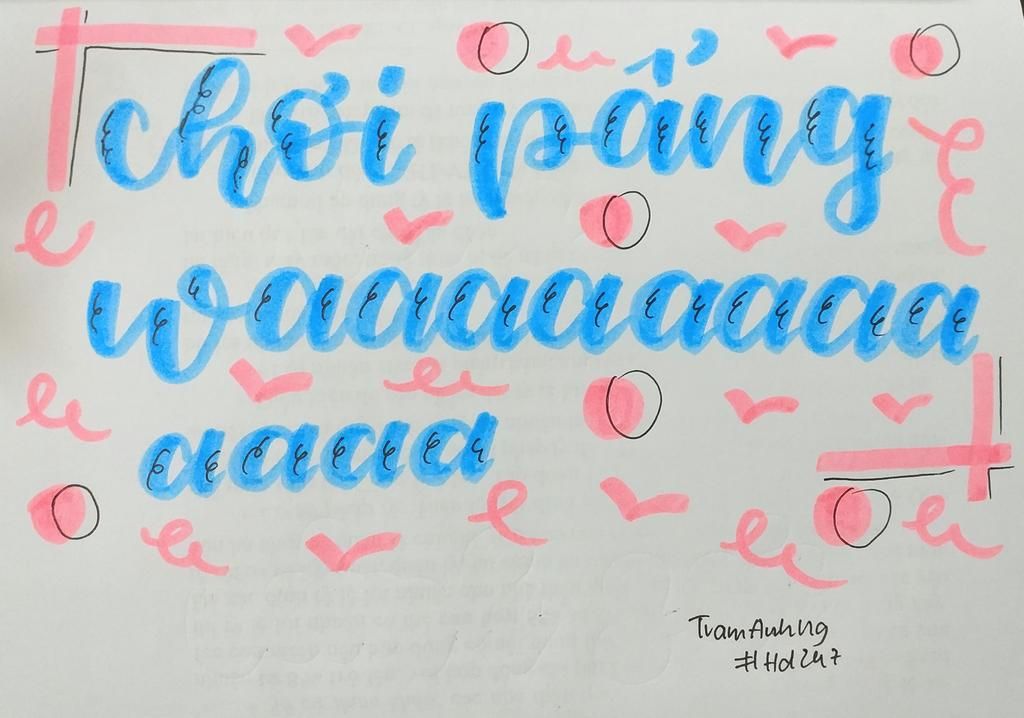 chơi pẩng
waaaaaaaa
aaaa
TramAnhNg
#1Hd247